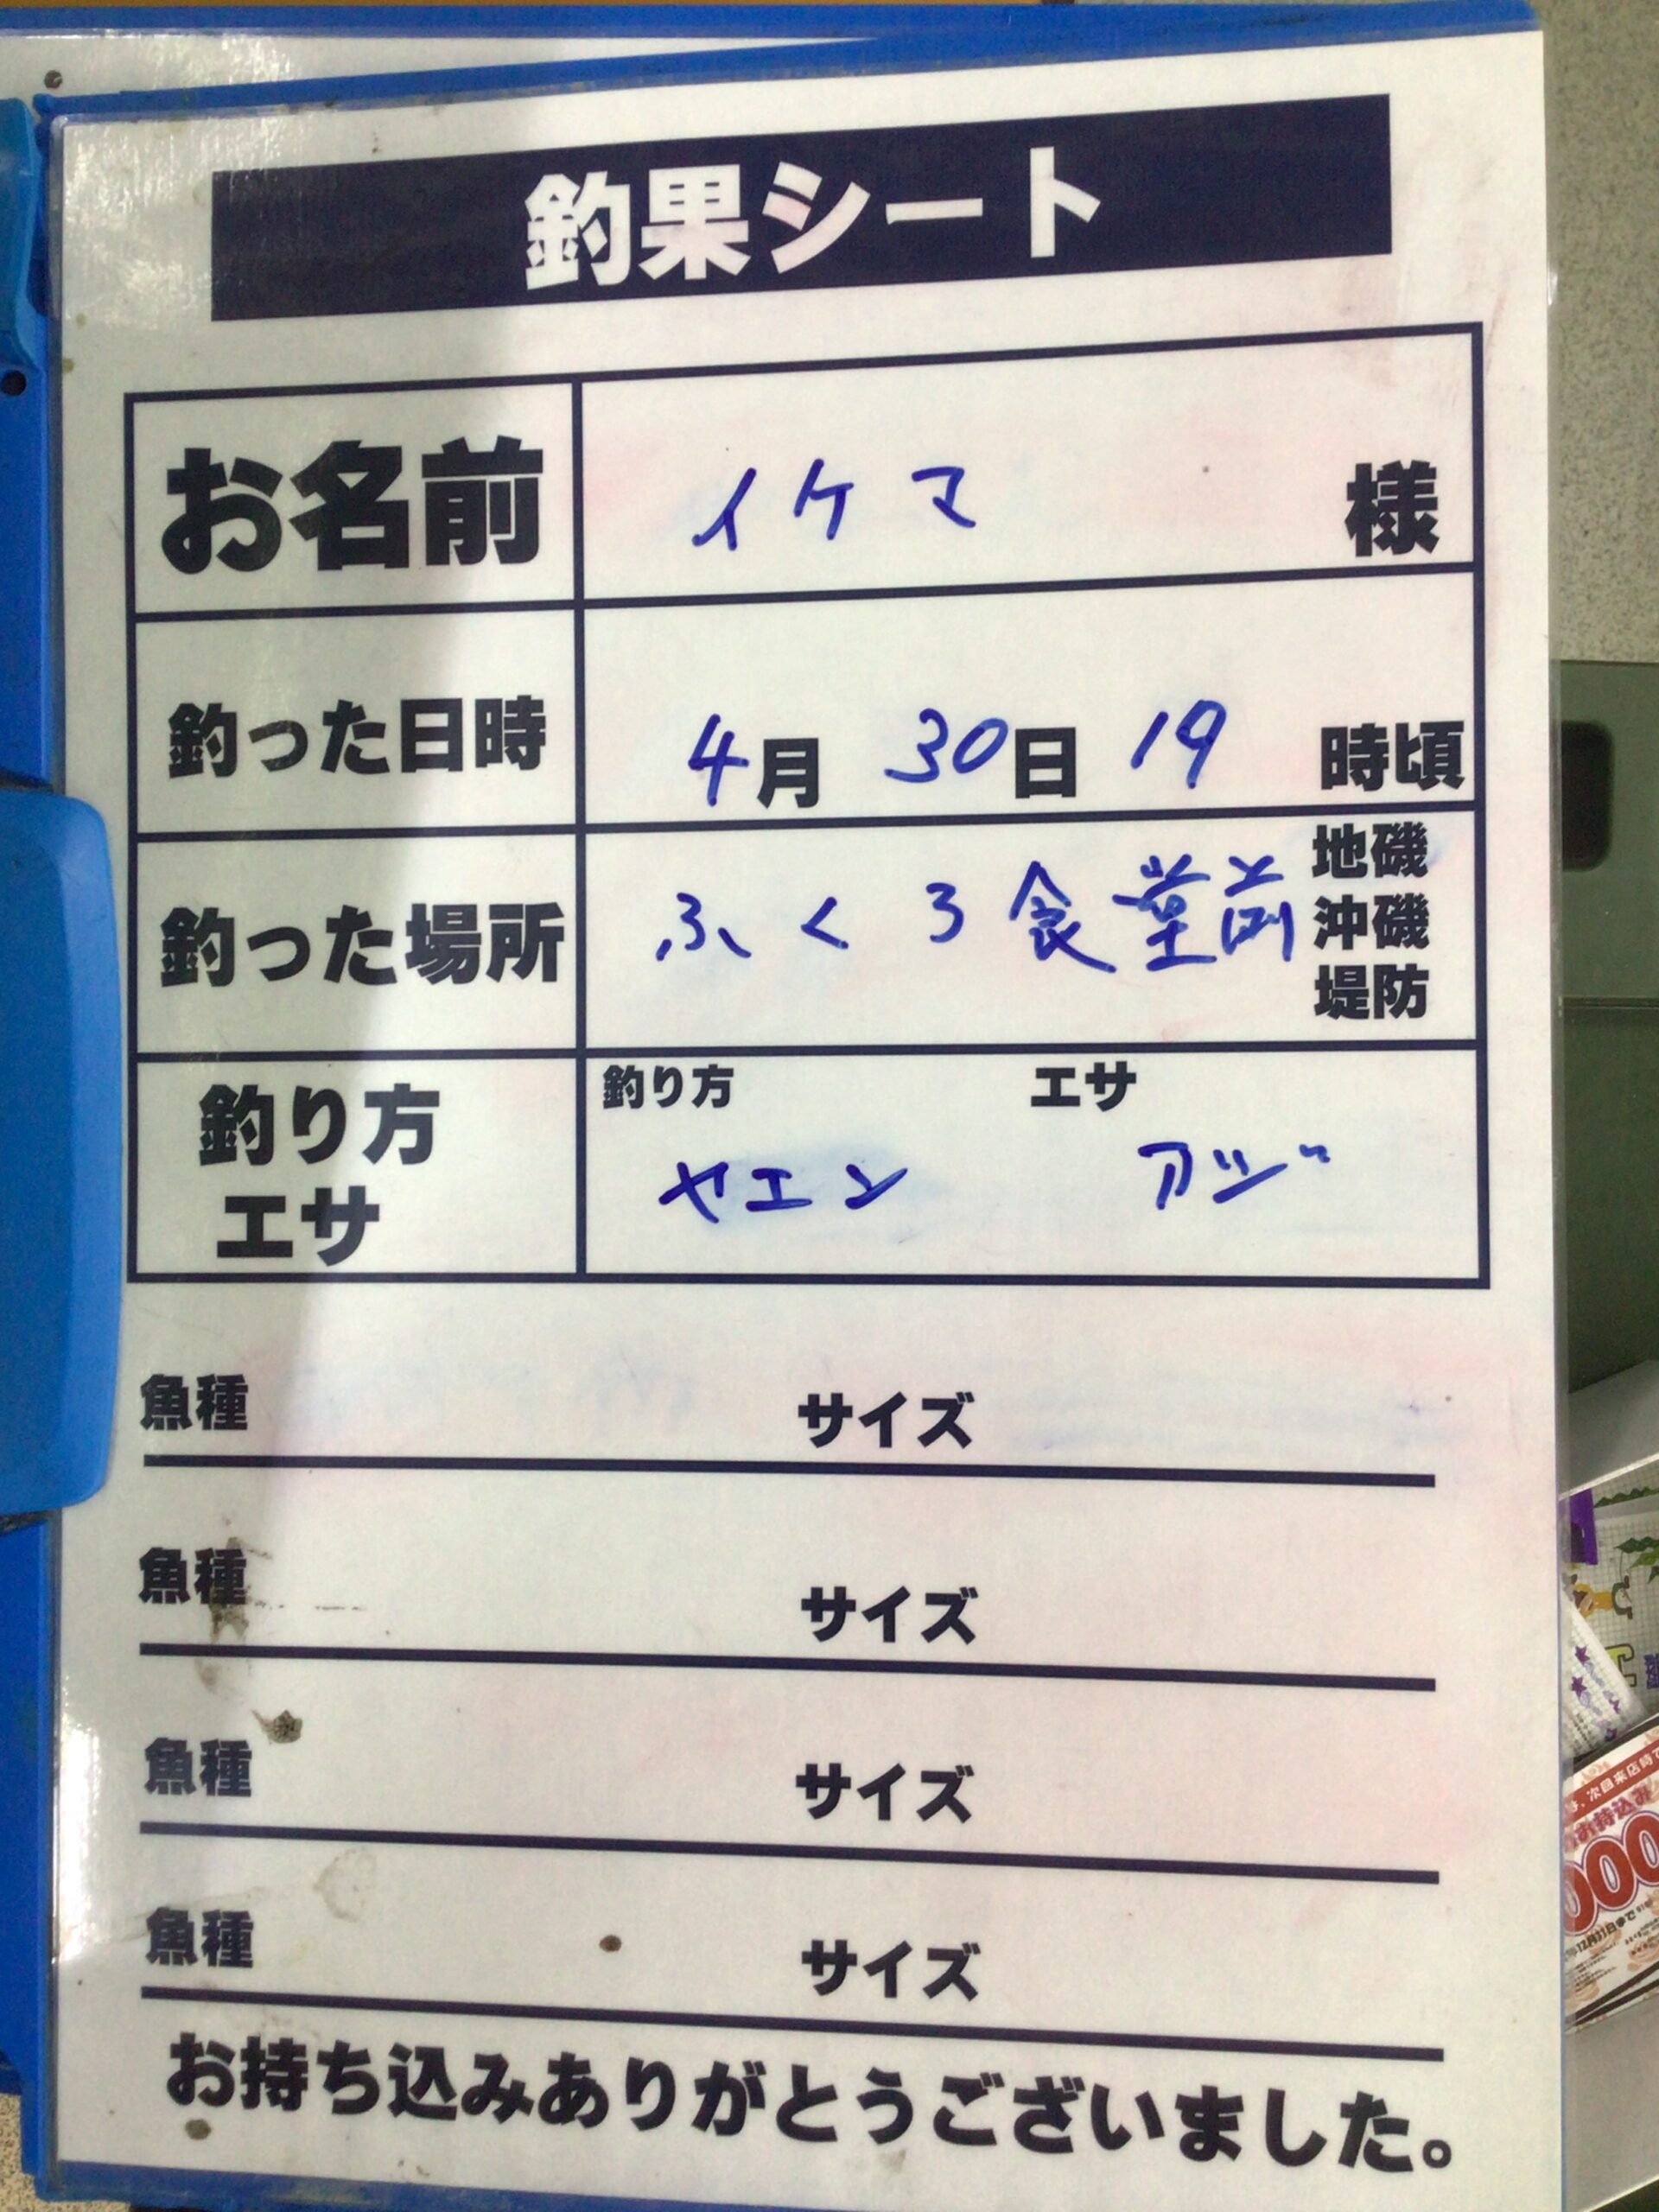 釣果シート
お名前 イケマ 様
釣った日時 4月 30日 19 時頃
釣った場所 ふくろ食堂前 地磯
沖磯
堤防
釣り方 エサ
釣り方
エサ
ヤエン アジ
魚種 サイズ
魚種 サイズ
魚種 サイズ
魚種 サイズ
お持ち込みありがとうございました。
次回来店時で
お持込み
000
12月31日まで